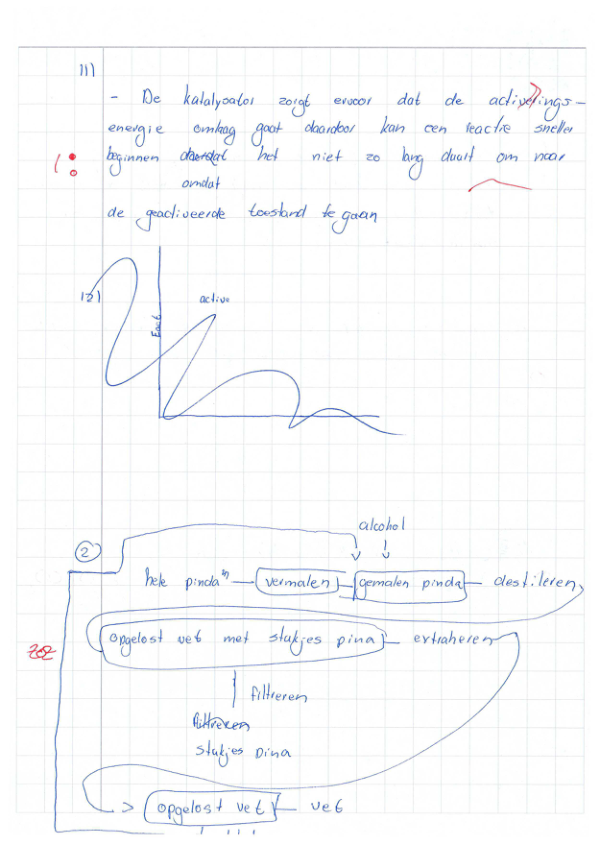 11)
- De katalysator zorgt ervoor dat de activerings-
energie omhag gaat daardoor kan een reactie sneller
beginnen daardat het niet zo lang duurt om naar
omdat
de geactiveerde toestand te gaan
12)
active
Eact
alcohol
2
hele pinda's — vermalen — gemalen pinda — destileren
opgelost vet met stukjes pina — extraheren
filtreren
filtreren
stukjes pina
> opgelost vet — vet